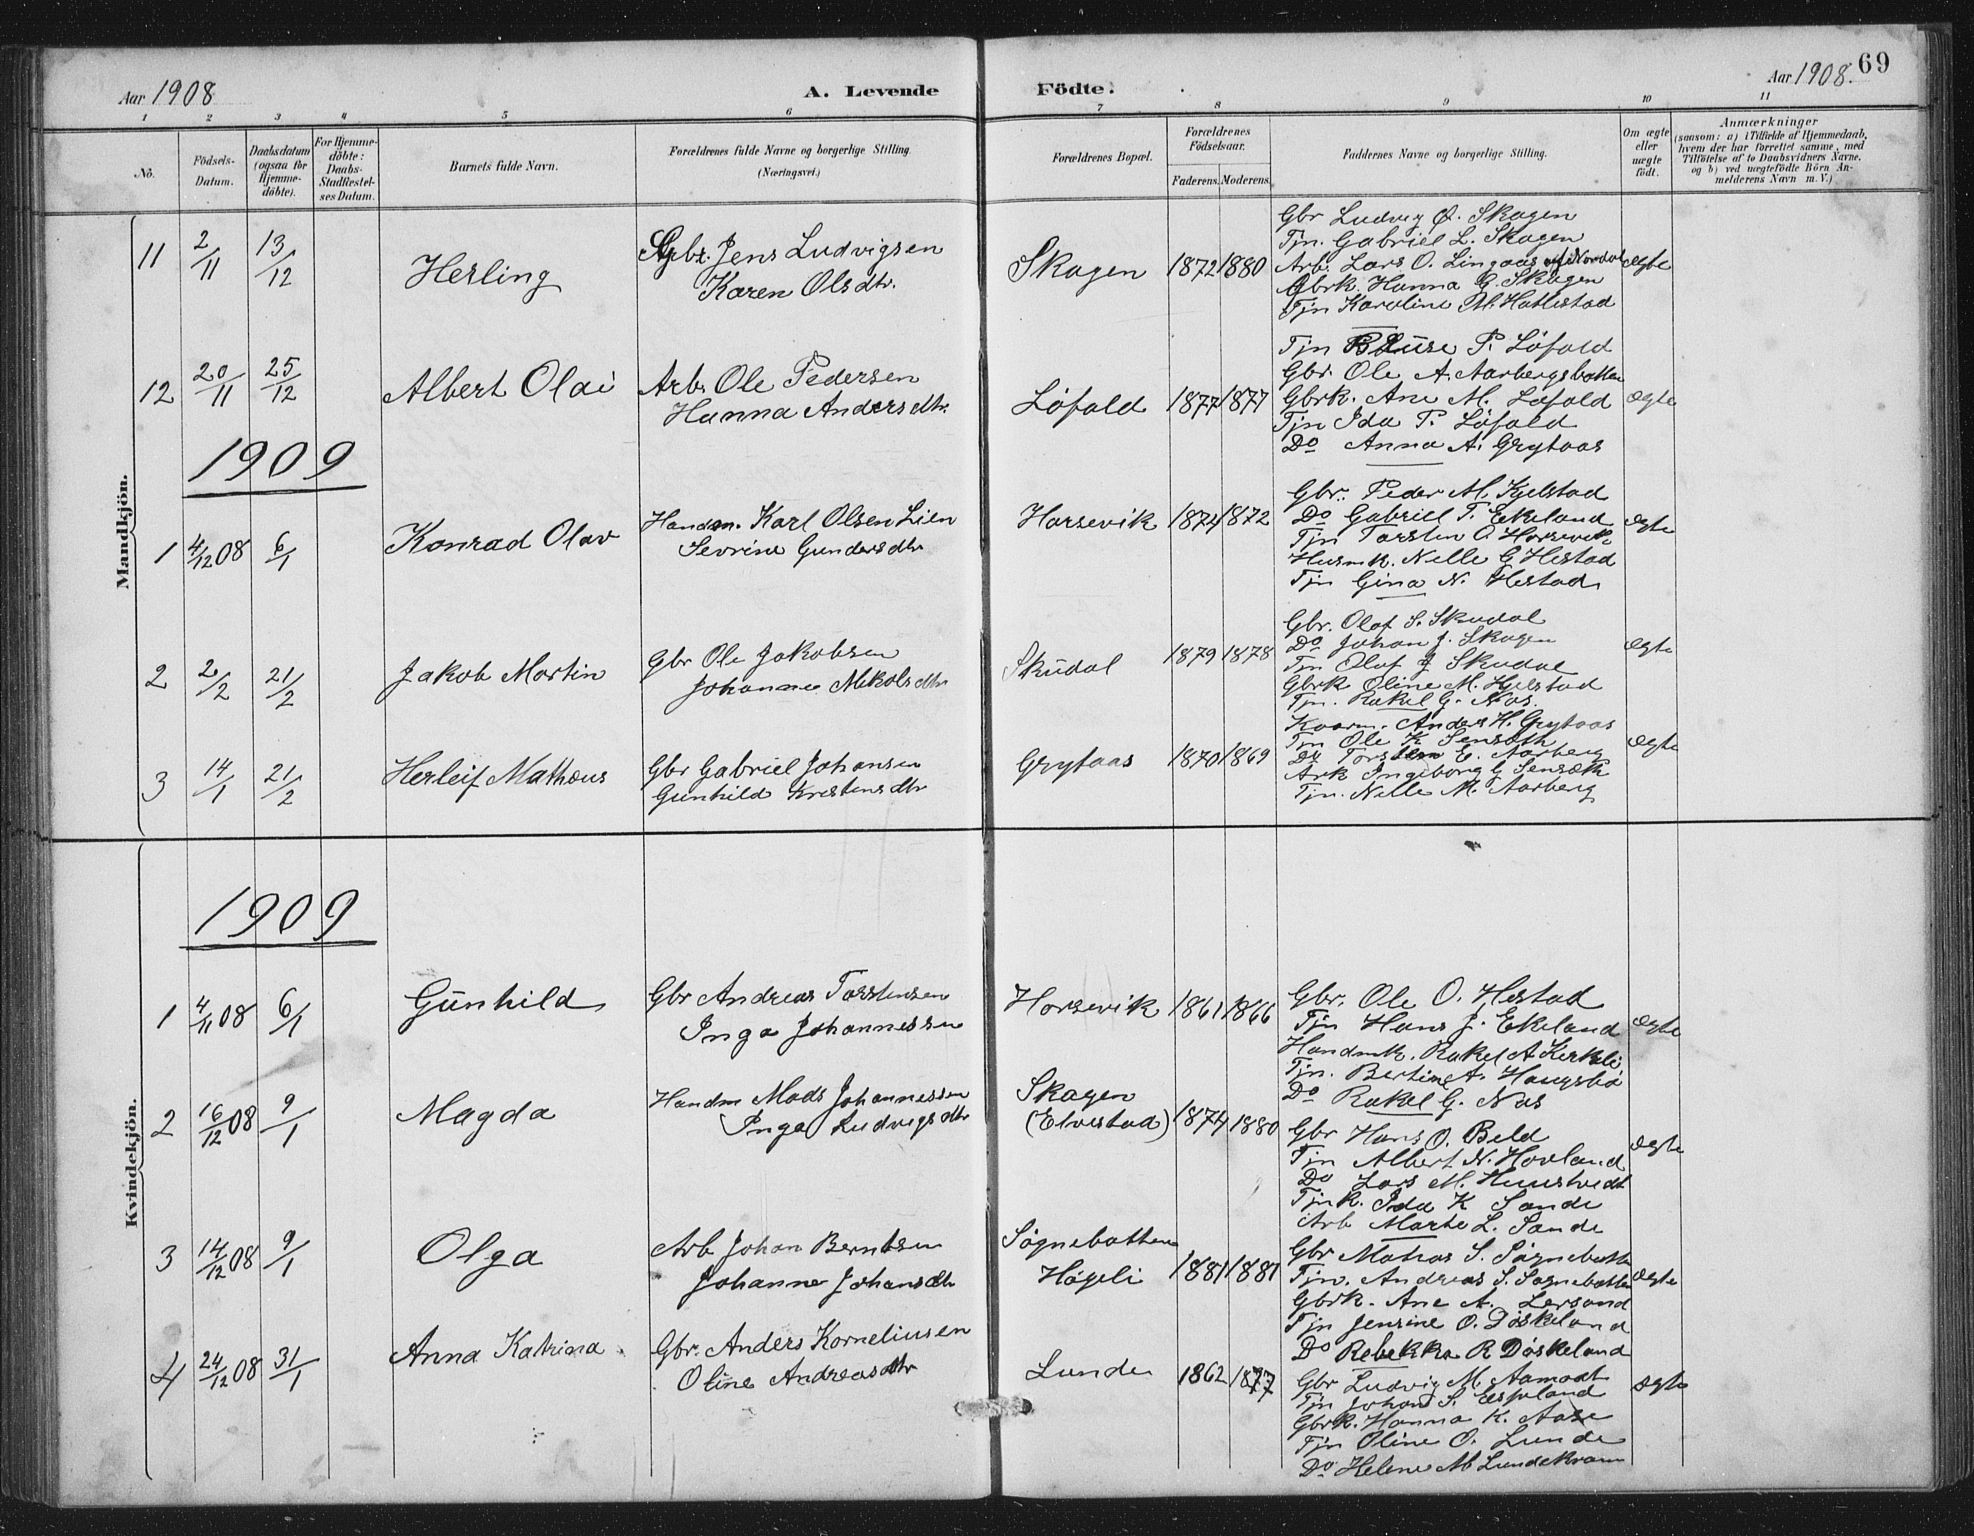 Aar 1908
A. Levende
Födte.
Aar 1908.
69
1 2 3 4 5 6 7 8 9 10 11
No.
Födsels-
Datum.
Daabsdatum
(ogsaa for
Hjemme-
döbte).
For Hjemme-
döbte:
Daabs-
Stadfestel-
ses Datum.
Barnets fulde Navn.
Forældrenes fulde Navne og borgerlige Stilling
(Næringsvei.)
Forældrenes Bopæl.
Forældrenes
Födselsaar.
Faderens. Moderens.
Faddernes Navne og borgerlige Stilling.
Om ægte
eller
uægte
födt.
Anmærkninger
(saasom: a) i Tilfælde af Hjemmedaab,
hvem der har forrettet samme, med
Tilföielse af to Daabsvidners Navne,
og b) ved uægtefödte Börn An-
melderens Navn m. V.)
Mandkjön.
11 2/11 13/12 Herling
Gbr. Jens Ludvigsen
Karen Olsdtr.
Skagen 1872 1880
Gbr Ludvig O. Skagen
Tjn. Gabriel L. Skagen
Arb. Lars O. Lingaas
Gbrk. Hanna G. Skagen
Tjn Karoline M. Hatlestad
ægte
12 20/11 25/12 Albert Olai
Arb. Ole Pedersen
Hanna Andersdtr.
Löfald 1877 1877
Tjn P. Löfald
Gbr. Ole A. Aarbergsbotten
Gbrk. Ane M. Löfald
Tjn Ida P. Löfald
Do Anna A. Grytaas
ægte
1909
1 4/12 08 6/1 Konrad Olav
Handm. Karl Olsen Lien
Sevrine Gundersdtr
Horsevik 1874 1872
Gbr. Peder M. Kjelstad
Do Gabriel T. Ekeland
Tjn Torsten O Horsevik
Husmk. Nelle G. Hestad
Tjn Gina N. Hestad
ægte
2 2/2 21/2 Jakob Martin
Gbr Ole Jakobsen
Johanne Nikolsdtr
Skudal 1879 1878
Gbr. Olaf S. Skudal
Do Johan J. Skagen
Tjn Olaf J Skudal
Gbrk Oline M. Hjelstad
Tjn. Rakel G. Nas.
ægte
3 14/1 21/2 Herleif Mathæus
Gbr Gabriel Johansen
Gunhild Kristensdtr
Grytaas 1870 1869
Kaarm. Anders H. Grytaas
Tjn Ole K Senstæk
Do Torstein E. Aarberg
Ark Ingeborg G Senstæk
Tjn. Nelle M. Aarberg
ægte
Kvindekjön.
1909
1 4/11 08 6/1 Gunhild
Gbr Andreas Torstensen
Inga Johannessen
Horsevik 1861 1866
Gbr. Ole O. Hestad
Tjn Hans J. Ekeland
Handmk. Rakel A Kerkeli
Tjn. Bertine A. Haugsbö
Do Rakel G. Nas
ægte
2 16/12 08 9/1 Magda
Handm Mads Johannessen
Inga Ludvigsdtr
Skagen
(Elvestad) 1874 1880
Gbr Hans O. Beld
Tjn Albert N. Hovland
Do Lars M. Huustvedt
Tjnk. Ida K Sande
Arb Marte L. Sande
ægte
3 14/12 08 9/1 Olga
Arb Johan Berntsen
Johanne Johansdtr
Sögnebotten
Högeli 1881 1881
Gbr Matias S. Sögnebotten
Tjn. Andreas S. Sognebotten
Gbrk. Ane A. Lersand
Tjn Jensine O. Döskeland
Do Rebekka R Döskeland
ægte
4 24/12 08 31/1 Anna Katrina
Gbr. Anders Korneliussen
Oline Andreasdtr
Lunde 1862 1877
Gbr Ludvig M. Aamodt
Tjn Johan S. Espeland
Gbrk. Hanna K. Aase
Tjn Oline O. Lunde
Do Helene M Lundekvam
ægte